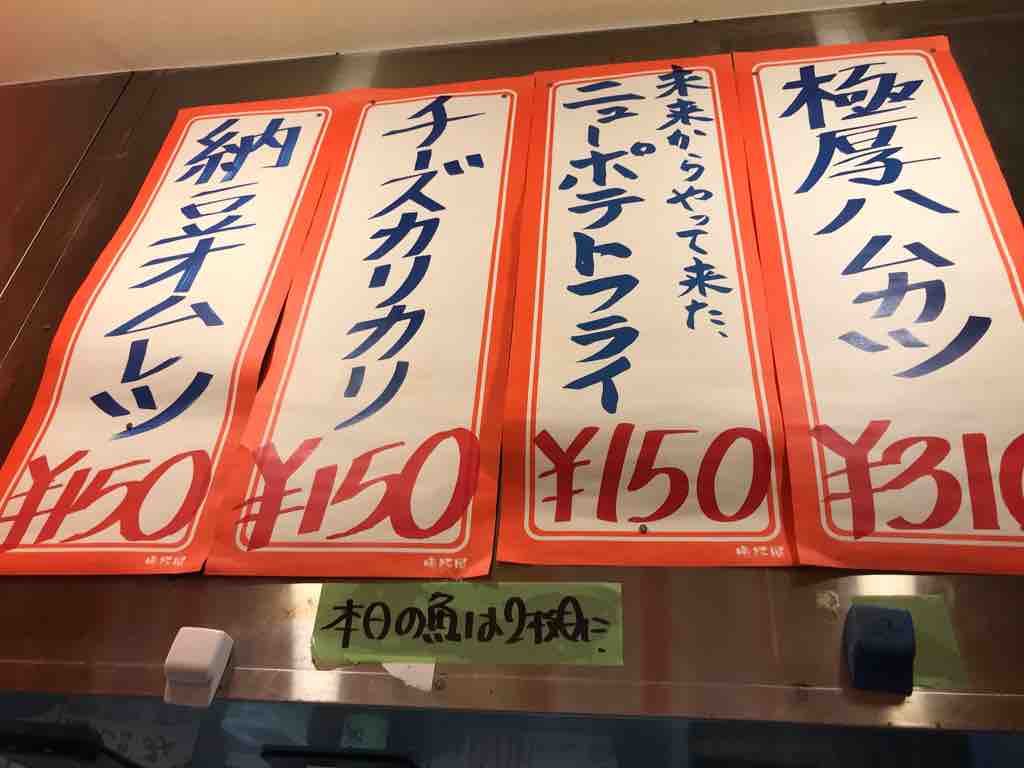 極厚ハムカツ
¥310
未来からやって来た、
ニューポテトフライ
¥150
チーズカリカリ
¥150
納豆オムレツ
¥150
本日の魚は